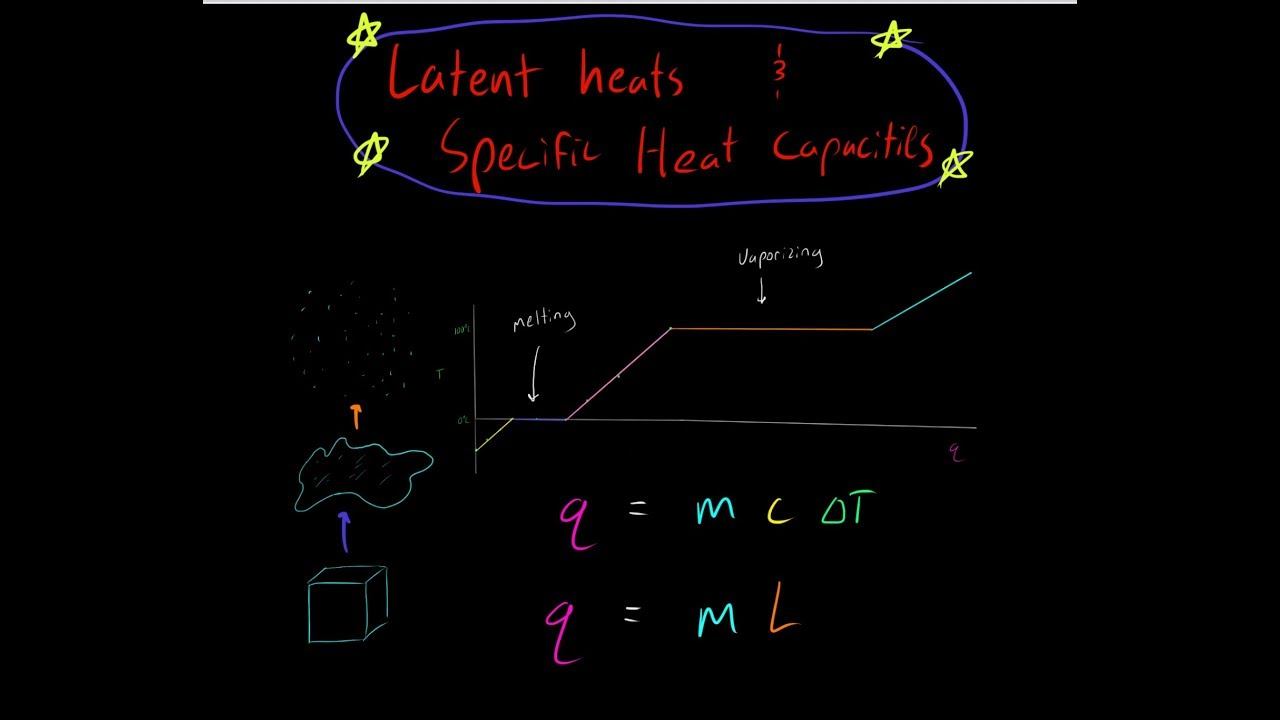 Latent heats &
Specific Heat Capacities
Vaporizing
melting
100°C
T
0°C
q
q = m c ΔT
q = m L